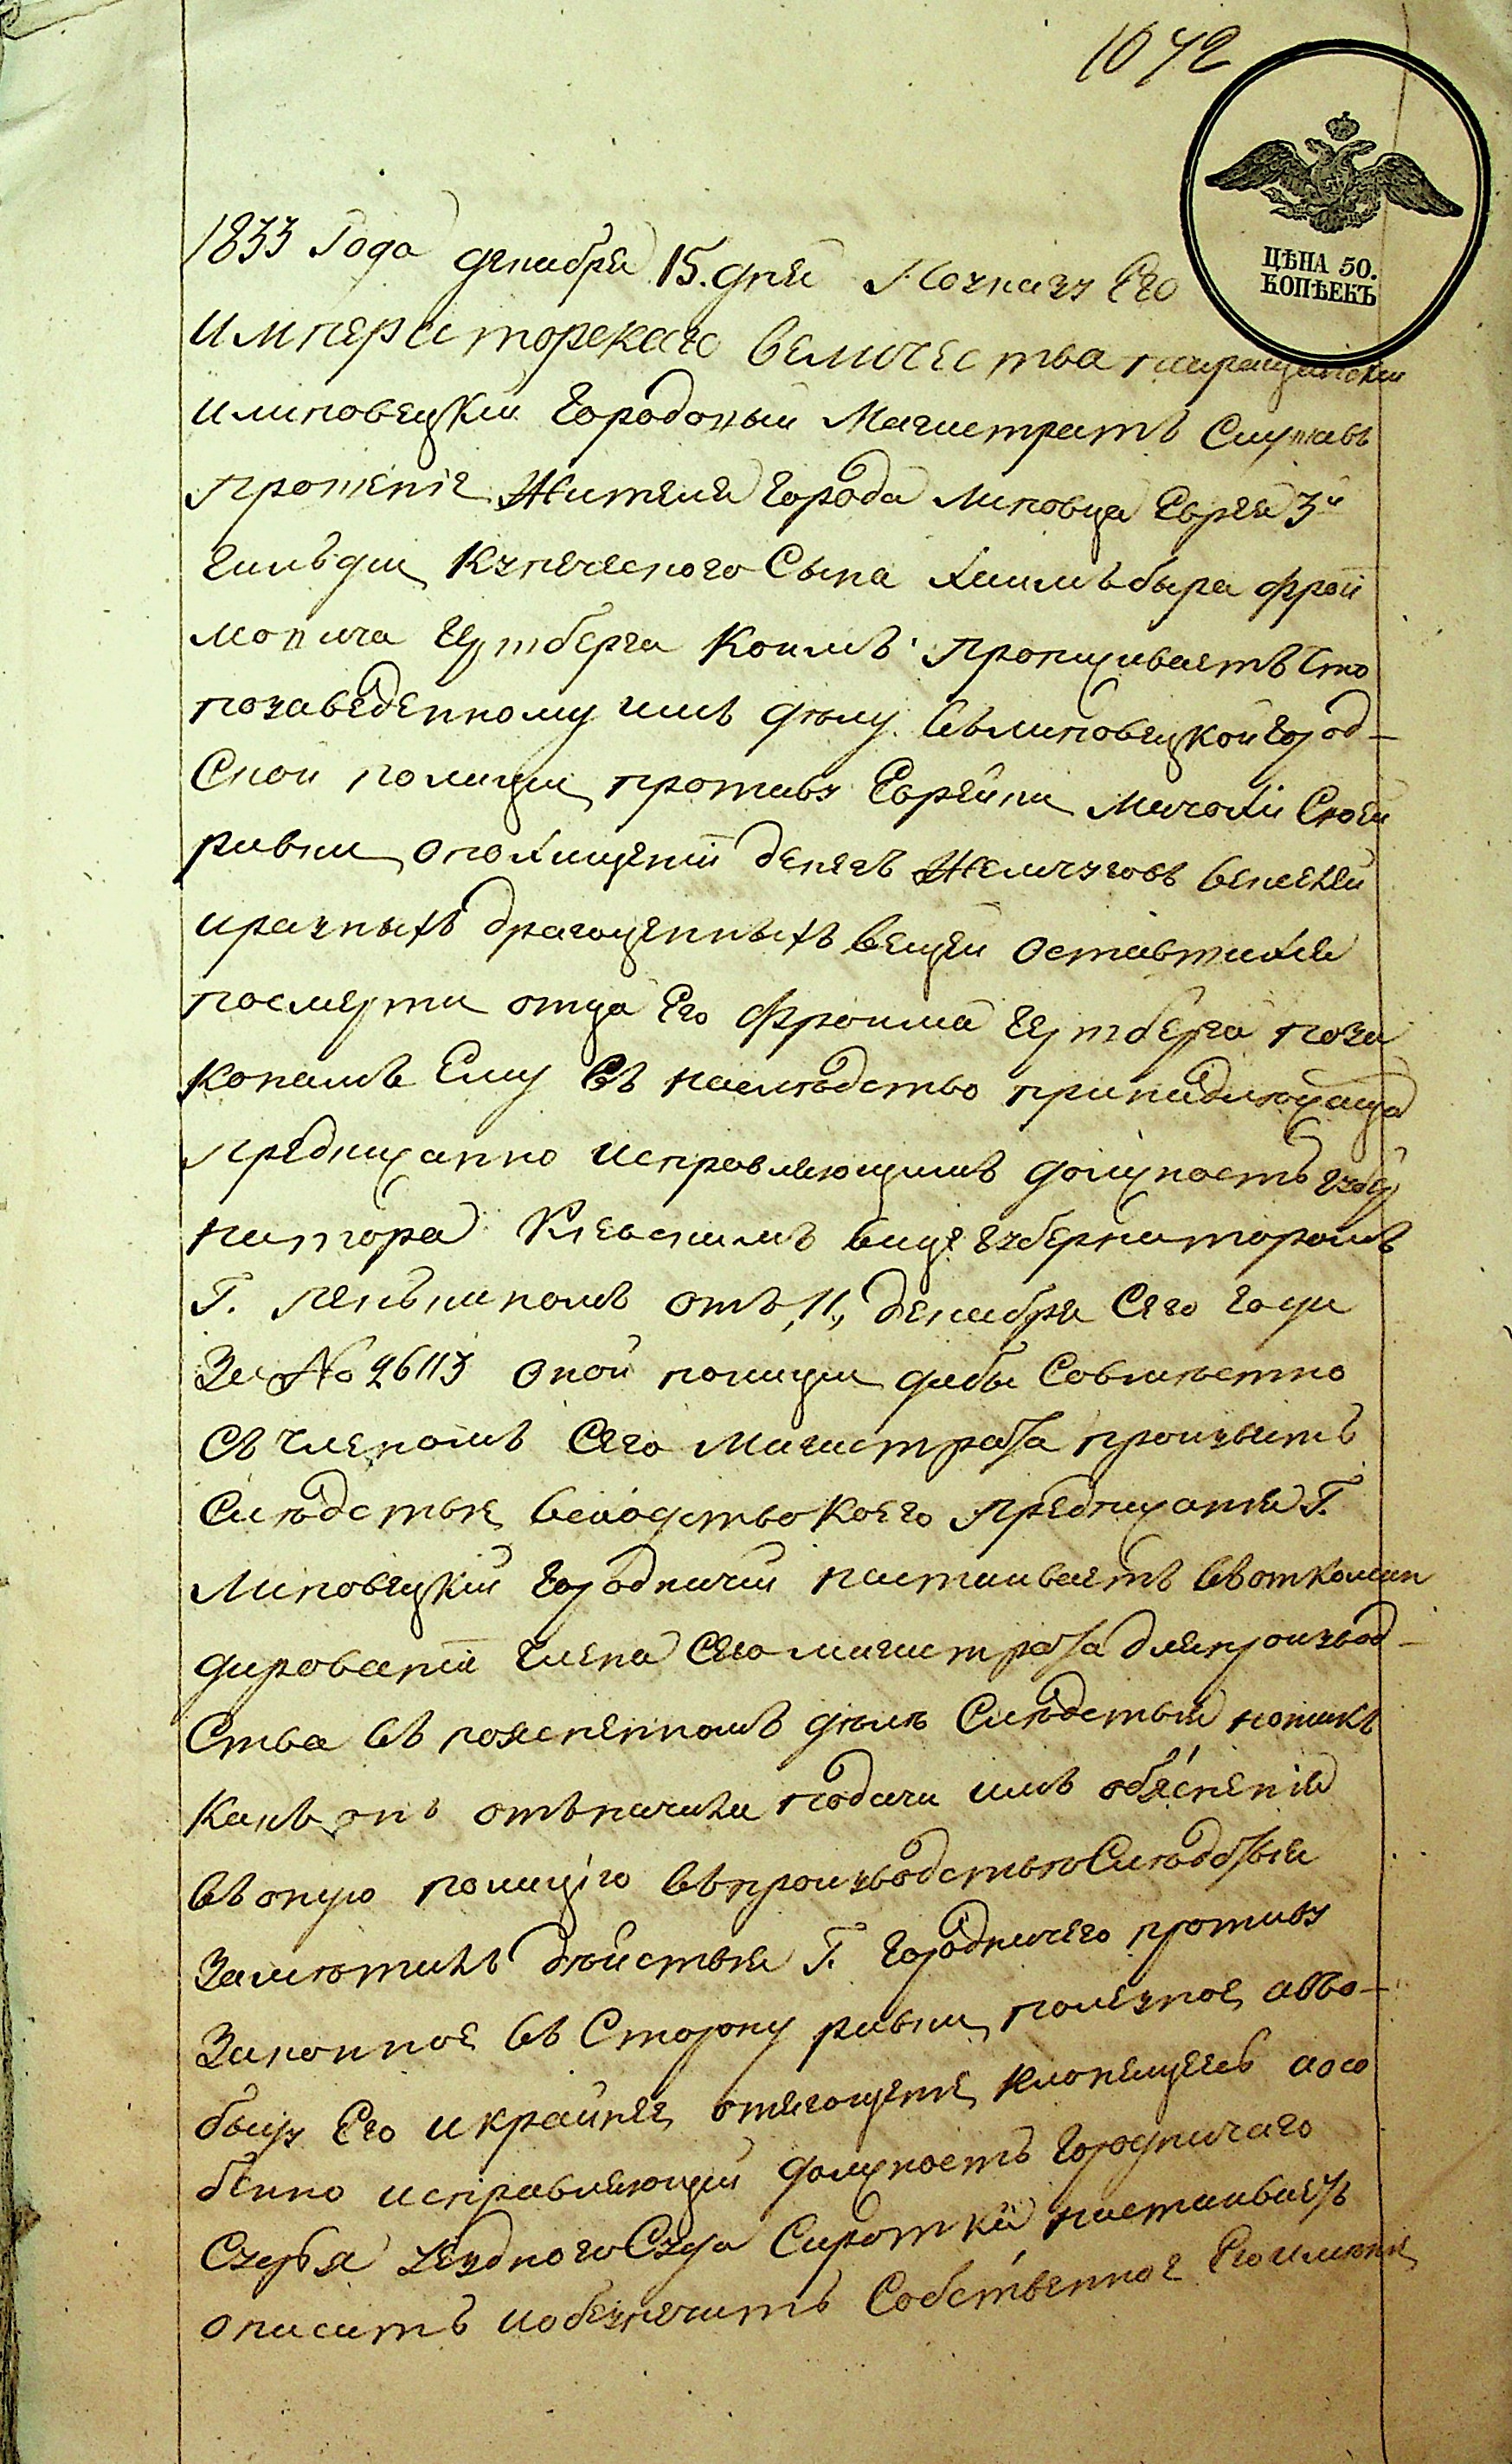 1042
ЦѢНА 50.
КОПѢЕКЪ
1833 Года декабря 15. дня Поуказу Его
Императорскаго величества
илиповецкий Городовый Магистратъ Слушавъ
прошеніе Жителя города Липовца Еврея 3й
гильдии Купеческого Сына Хаимъ бера Фрой
мовича Гутберга Коимъ прописываетъ Что
позаведенному имъ делу Вълиповецкой Город–
Ской полиции противу Еврейки Малохи
ривки опохищеніи денегъ Жемчуговъ векселей
иразныхъ драгоценныхъ вещей оставшихся
посмерти отца Его Фроима Гутберга поза
конамъ Ему Въ наследство принадлежащихъ
предписанно исправляющимъ должность губер
натора Киевскимъ вице губернаторомъ
Г. отъ „11„ декабря Сего года
За № 26113 Оной полиции дабы Совместно
Съ Членомъ Сего Магистрата произвесть
Следствие, вследство Коего предписания Г.
Липовецкий Городничий настаиваетъ Въоткоман
дировании Члена Сегомагистрата дляпроизвод–
Ства Въ поясненномъ деле Следствия нотакъ
Какъ онъ отъначала подачи имъ объяснения
Въоную полицію Въпроизводстве Следствия
Заметилъ действия Г. Городничего противу
Законное Въ Сторону ривки полезное аВъо–
биду Его икрайнее отягощение Клонящеесъ аосо
бенно исправляющий должность Городничаго
Судья уездного Суда Сиротка настаиваетъ
описать иобезпечить Собственное Егоимение